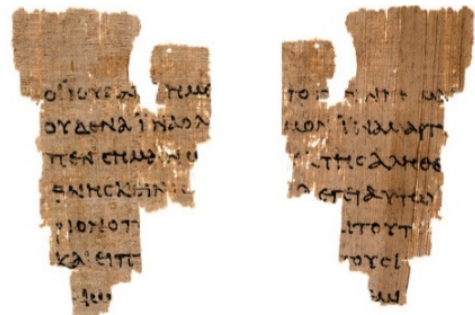 ΟΙ ΙΟΥΔΑΙ ΗΜΕ
ΟΥΔΕΝΑ ΙΝΑ Ο Λ
ΠΕΝ CΗΜΑΙΝΩ
ΘΝΗCΚΕΙΝ
ΡΙΟΝ Ο Π
ΚΑΙ ΕΙΠ
ΤΟ
ΜΟΝ ΙΝΑ ΜΑΡΤΥ
ΤΗC ΑΛΗΘΕ
ΛΕΓΕΙ ΑΥΤΩ
ΙΤΟΥΤ
ΤΟΥC Ι